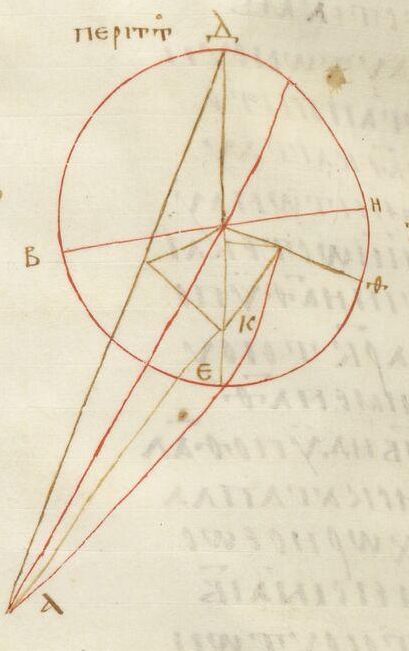 περιττ
Δ
Η
Β
θ
Κ
Ε
Α